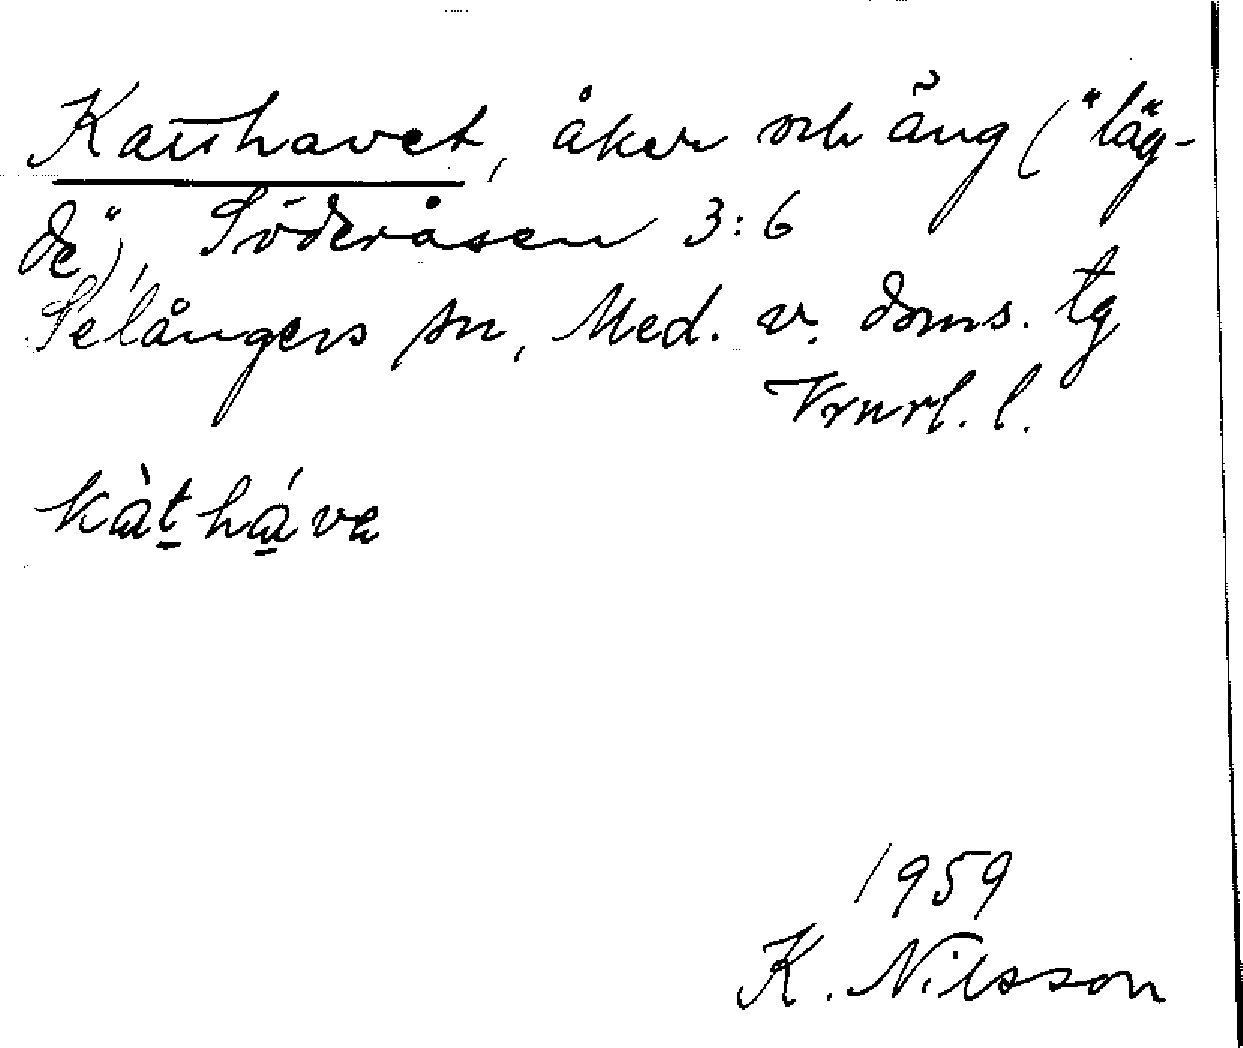 Katthavet, åker och äng ("läg-
de"), Söderåsen 3:6
Selångers sn, Med. v. doms. tg
Vrnrl. l.
kàt̠há̠va
1959
K. Nilsson